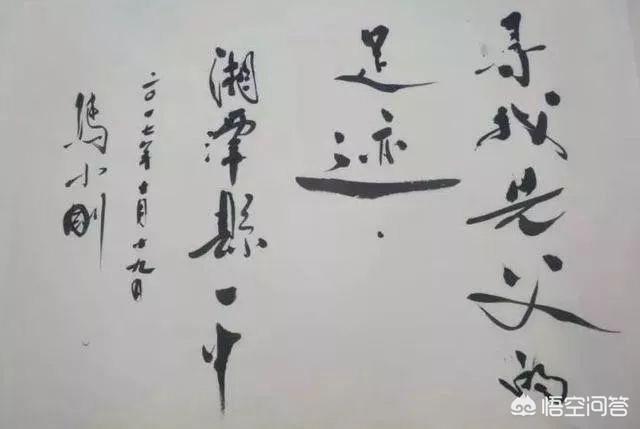 寻我先父的
足迹.
湘潭縣一中
二〇一七年十月十九日
冯小刚
悟空问答